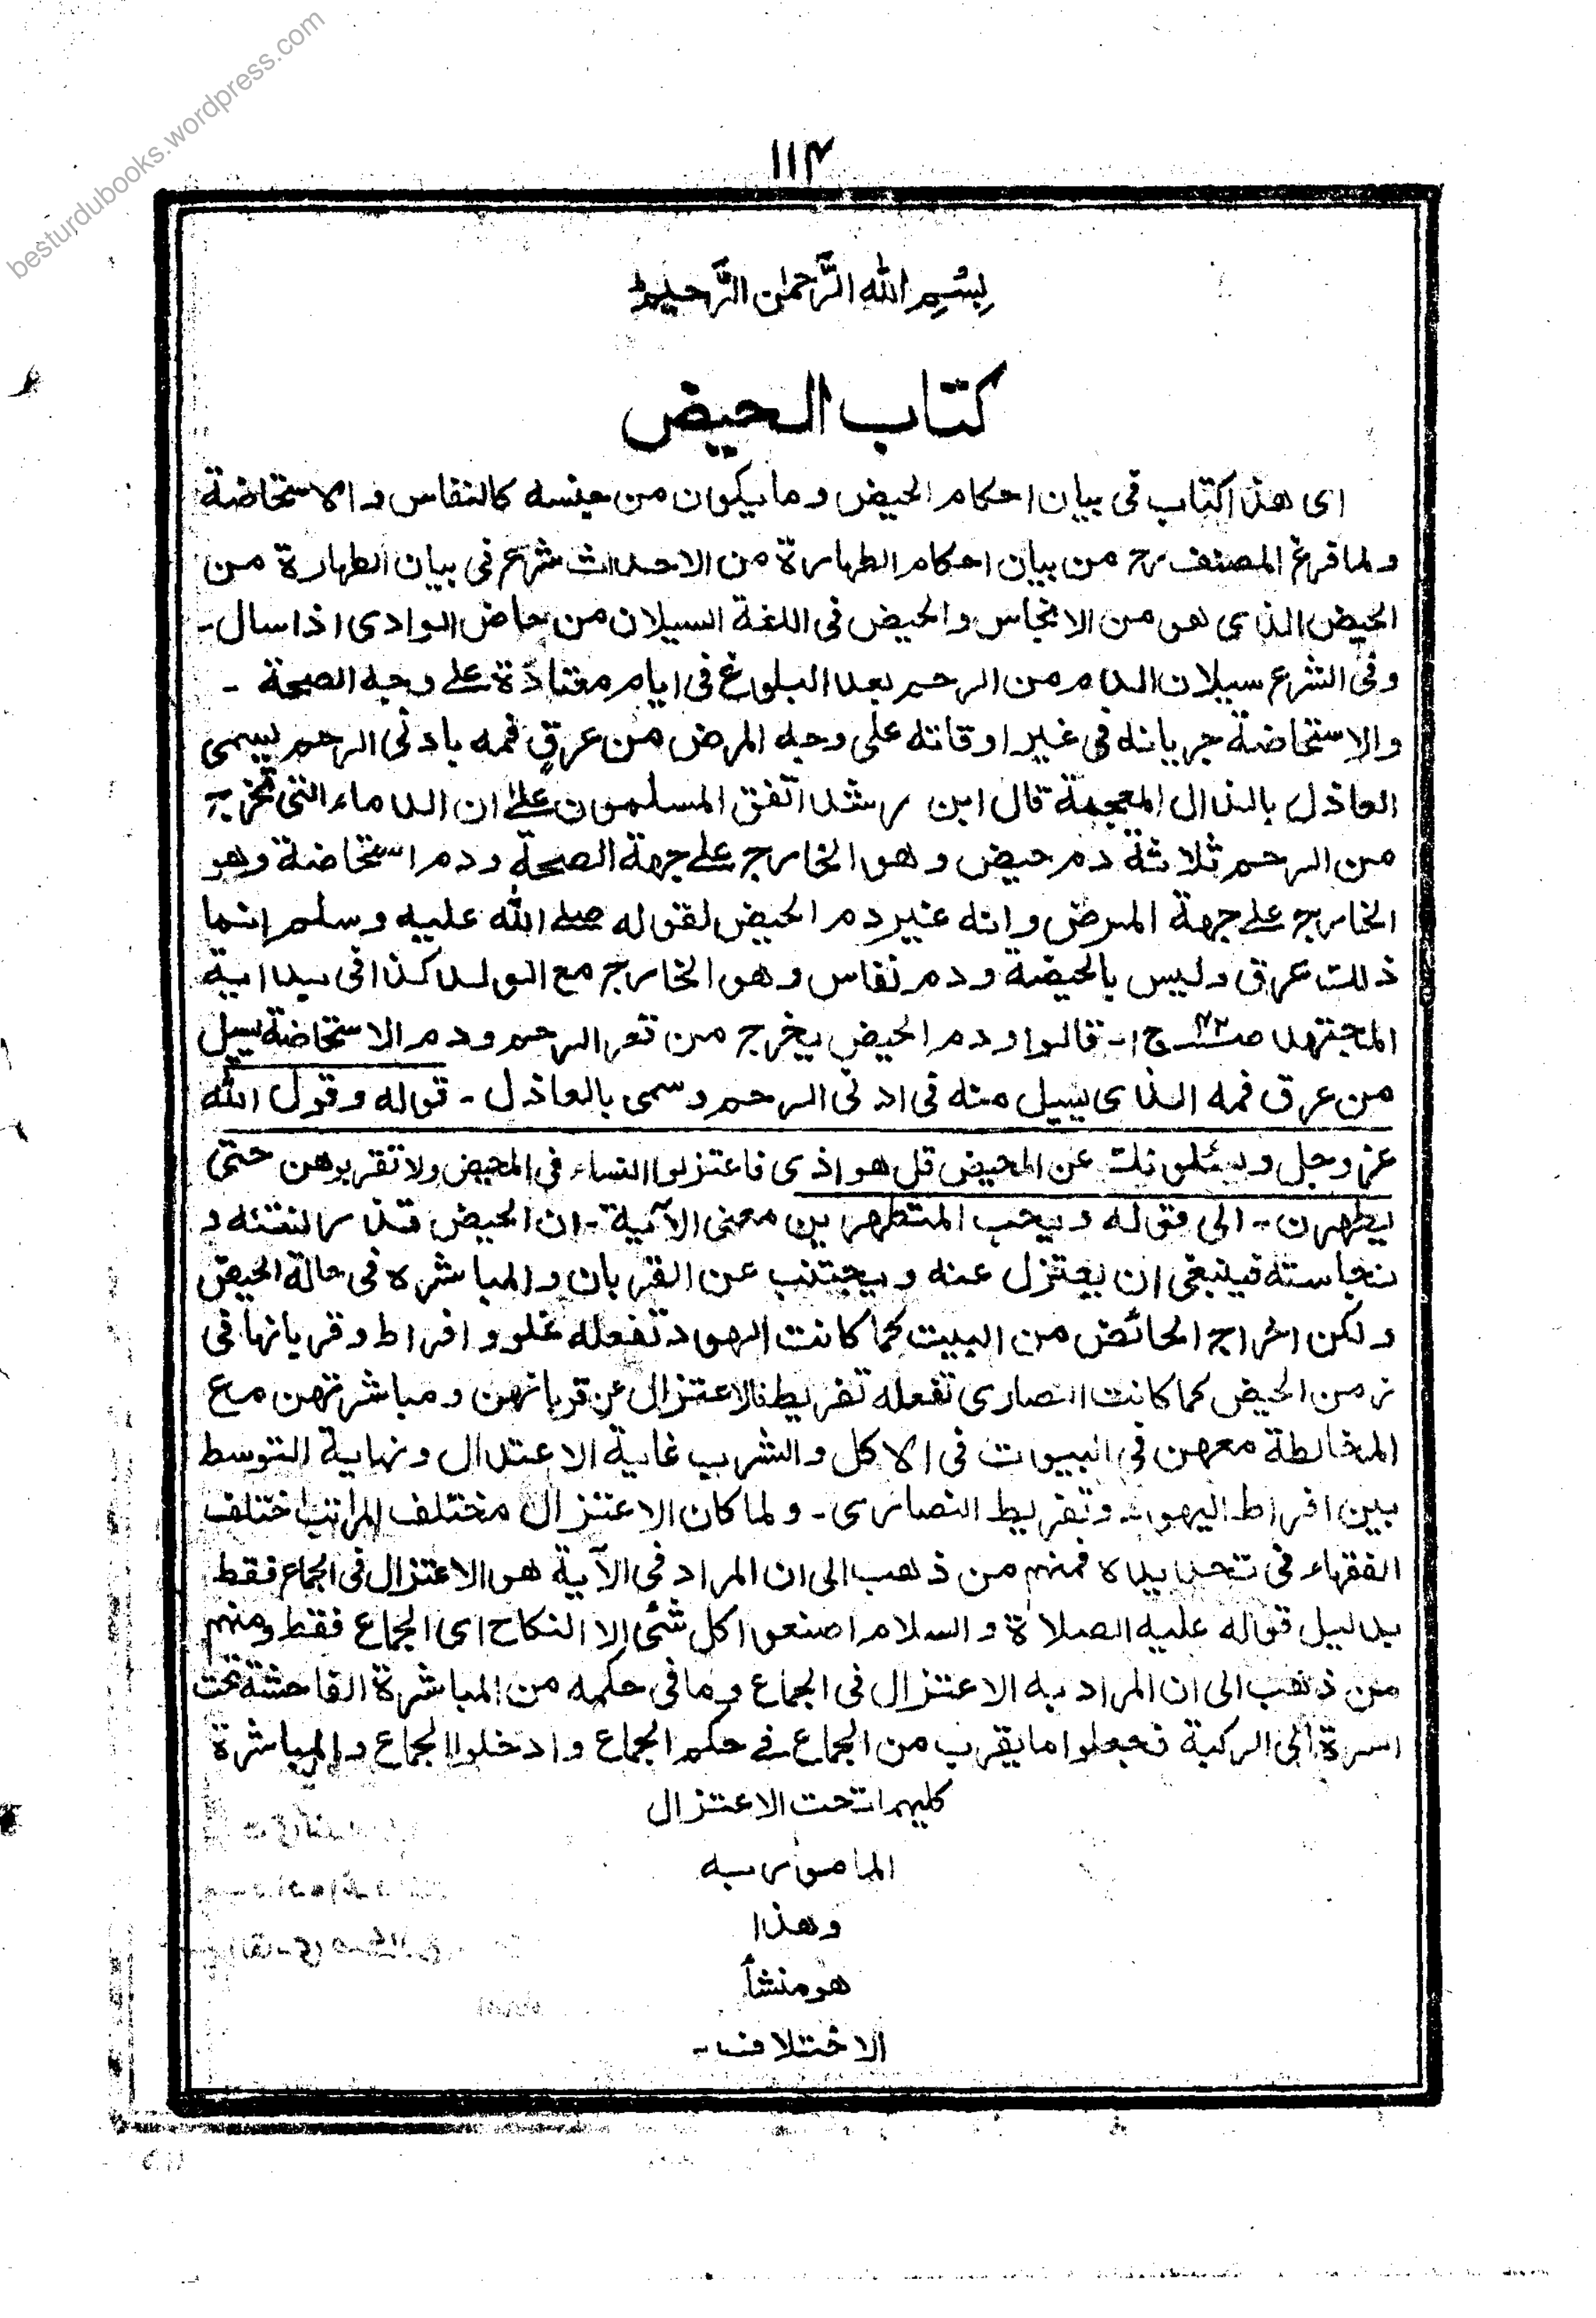 besturdubooks.wordpress.com
۱۱۴
بِسْمِ اللّٰهِ الرَّحْمٰنِ الرَّحِيْمِ
كتاب الحيض
اى هذا كتاب فى بيان احكام الحيض وما يكون من جنسه كالنفاس والاستحاضة
ولما فرغ المصنف رح من بيان احكام الطهارة من الاحداث شرع فى بيان الطهارة من
الحيض الذى هو من الانجاس والحيض فى اللغة السيلان من حاض الوادى اذا سال-
وفى الشرع سيلان الدم من الرحم بعد البلوغ فى ايام معتادة على وجه الصحة -
والاستحاضة جريانه فى غير اوقاته على وجه المرض من عرقٍ فمه بادنى الرحم يسمى
العاذل بالذال المعجمة قال ابن رشد اتفق المسلمون على ان الدماء التى تخرج
من الرحم ثلاثة دم حيض وهو الخارج على جهة الصحة ودم استحاضة وهو
الخارج على جهة المرض وانه غير دم الحيض لقوله صلى الله عليه وسلم إنما
ذلك عرق وليس بالحيضة ودم نفاس وهو الخارج مع الولد كذا فى بداية
المجتهد ص۴۲ ج۱- قالوا ودم الحيض يخرج من قعر الرحم ودم الاستحاضة يسيل
من عرق فمه الذى يسيل منه فى ادنى الرحم وسمى بالعاذل - قوله وقول الله
عز وجل ويسئلونك عن المحيض قل هو اذى فاعتزلوا النساء فى المحيض ولا تقربوهن حتى
يطهرن - الى قوله ويحب المتطهرين معنى الآية - ان الحيض قذر لنتنه و
نجاسته فينبغى ان يعتزل عنه ويجتنب عن القربان والمباشره فى حالة الحيض
ولكن اخراج الحائض من البيت كما كانت اليهود تفعله غلو وافراط وقربانها فى
زمن الحيض كما كانت النصارى تفعله تفريط فالاعتزال عن قربانهن ومباشرتهن مع
المخالطة معهن فى البيوت فى الاكل والشرب غاية الاعتدال ونهاية التوسط
بين افراط اليهود وتفريط النصارى - ولما كان الاعتزال مختلف المراتب اختلف
الفقهاء فى تحديده فمنهم من ذهب الى ان المراد فى الآية هو الاعتزال فى الجماع فقط
بدليل قوله عليه الصلاة والسلام اصنعوا كل شئى الا النكاح اى الجماع فقط ومنهم
من ذهب الى ان المراد به الاعتزال فى الجماع وما فى حكمه من المباشرة الفاحشة تحت
السرة الى الركبة فجعلوا ما يقرب من الجماع فى حكم الجماع وادخلوا الجماع والمباشرة
كليهما تحت الاعتزال
المامور به
وهذا
هو منشأ
الاختلاف -